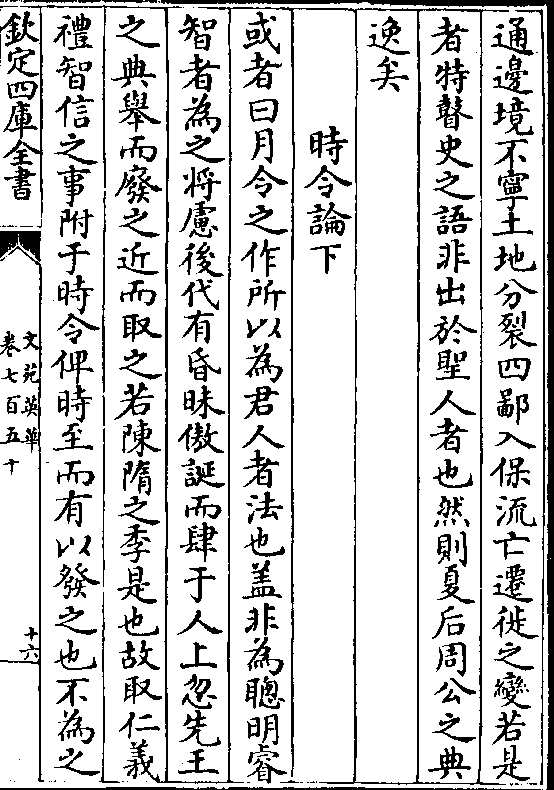 通邊境不寧土地分裂四鄙入保流亡遷徙之變若是
者特瞽史之語非出於聖人者也然則夏后周公之典
逸矣
時令論下
或者曰月令之作所以為君人者法也盖非為聰明睿
智者為之將慮後代有昏昧傲誕而肆于人上忽先王
之典舉而廢之近而取之若陳隋之季是也故取仁義
禮智信之事附于時令俾時至而有以發之也不為之
欽定四庫全書
文苑英華
卷七百五十
十六